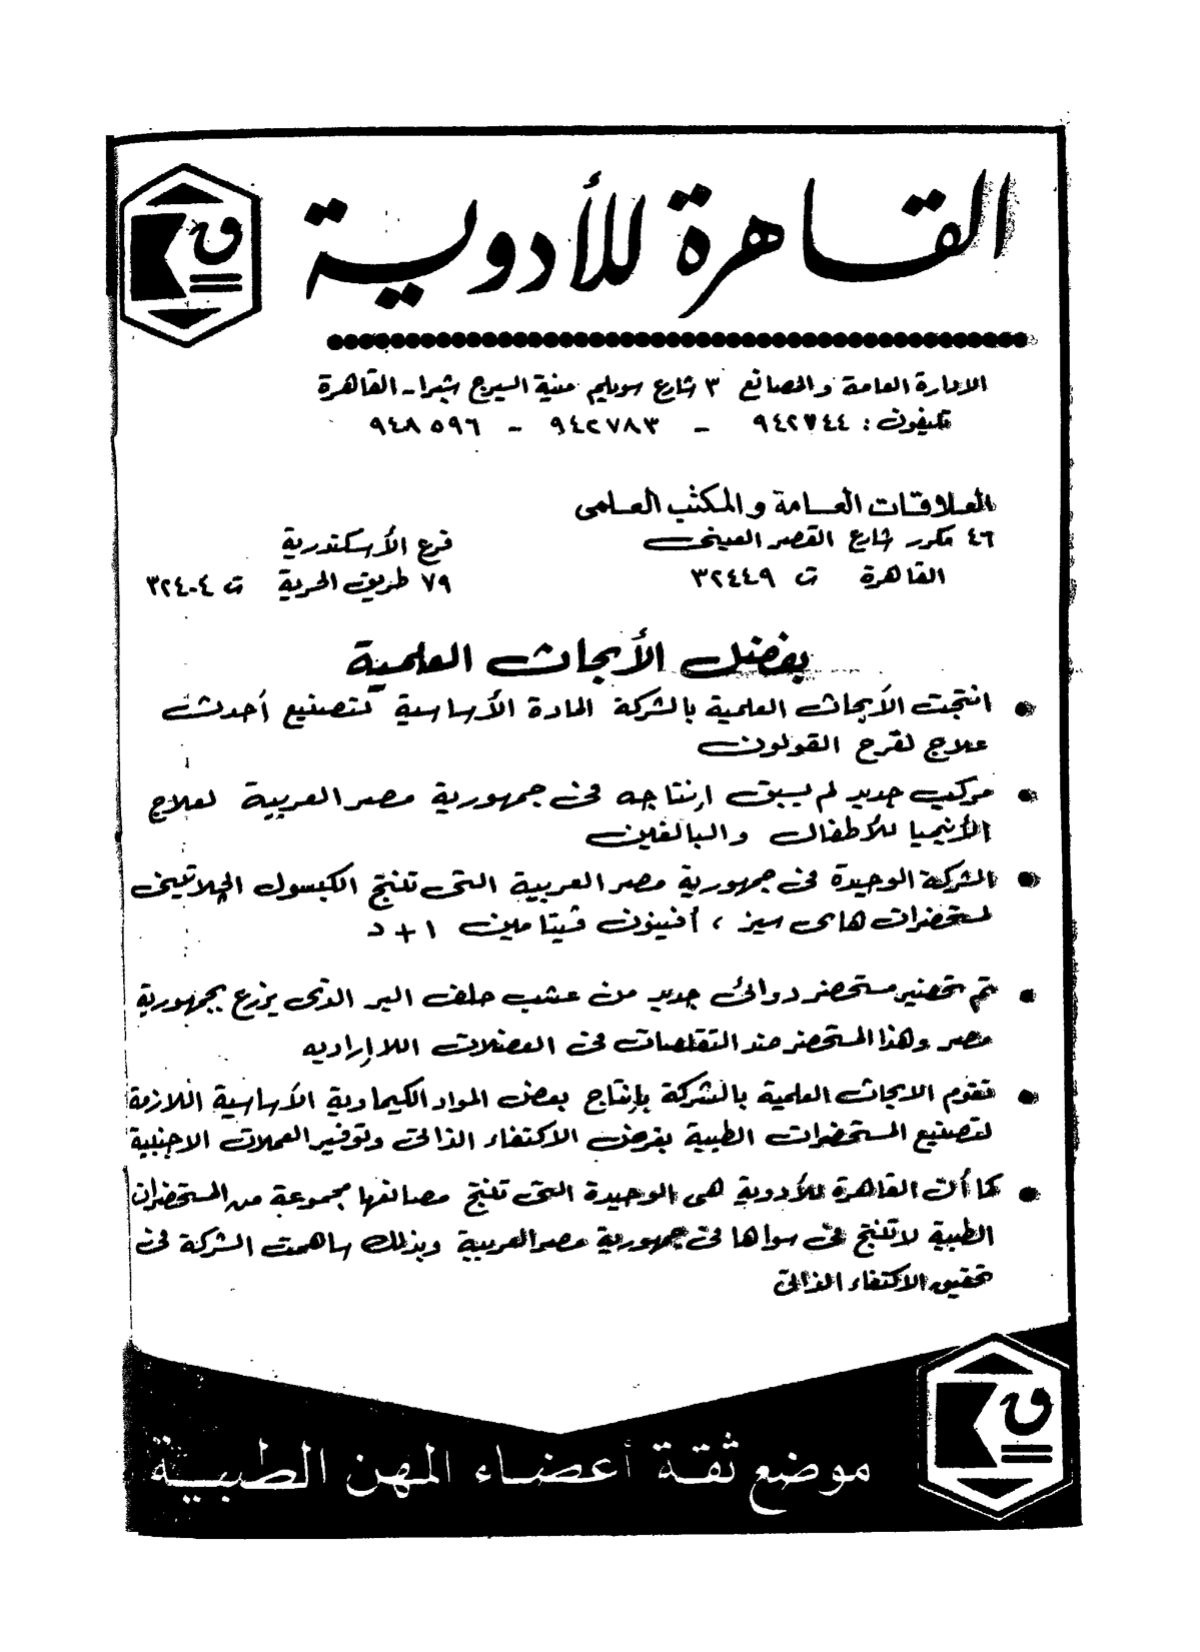 القاهرة للأدوية
ق
الادارة العامة والمصانع ٣ شارع سويلم منية السيرج شبرا - القاهرة
تليفون : ٩٤٢٧٤٤ - ٩٤٢٧٨٣ - ٩٤٨٥٩٦
العلاقات العامة والمكتب العلمى
٤٦ مكرر شارع القصر العينى
القاهرة ت ٣٢٤٤٩
فرع الأسكندرية
٧٩ طريق الحرية ت ٣٢٤٠٤
بفضل الأبحاث العلمية
• انتجت الأبحاث العلمية بالشركة المادة الأساسية لتصنيع أحدث
علاج لقرح القولون
• مركب جديد لم يسبق إنتاجه فى جمهورية مصر العربية لعلاج
الأنيميا للأطفال والبالغين
• الشركة الوحيدة فى جمهورية مصر العربية التى تنتج الكبسول الجلاتينى
لمستحضرات هاى سيز ، أفنيون فيتامين ١ + د
• تم تحضير مستحضر دوائى جديد من عشب حلف البر الذى يزرع بجمهورية
مصر وهذا المستحضر ضد التقلصات فى العضلات اللاإراديه
• تقوم الابحاث العلمية بالشركة بإنتاج بعض المواد الكيماوية الأساسية اللازمة
لتصنيع المستحضرات الطبية بغرض الاكتفاء الذاتى وتوفير العملات الاجنبية
• كما أن القاهرة للأدوية هى الوحيدة التى تنتج مصانعها مجموعة من المستحضرات
الطبية لا تنتج فى سواها فى جمهورية مصر العربية وبذلك ساهمت الشركة فى
تحقيق الاكتفاء الذاتى
موضع ثقة أعضاء المهن الطبية
ق